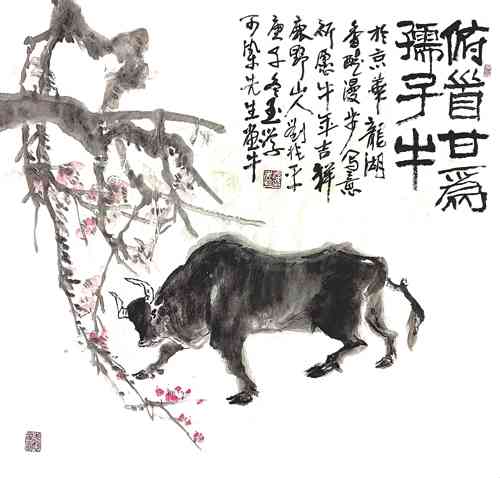 俯首甘為
孺子牛
於京華龍湖
香醍漫步写意
祈愿牛年吉祥
野山人劉平
庚子冬至學
可染先生畫牛